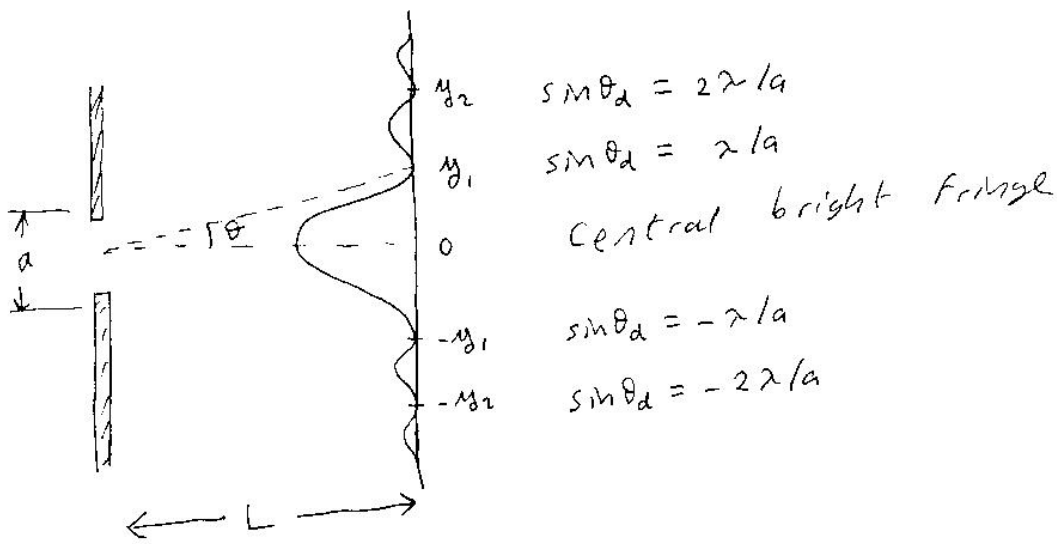 y₂ sinθd = 2λ/a
y₁ sinθd = λ/a
a θ 0 Central bright fringe
-y₁ sinθd = -λ/a
-y₂ sinθd = -2λ/a
L